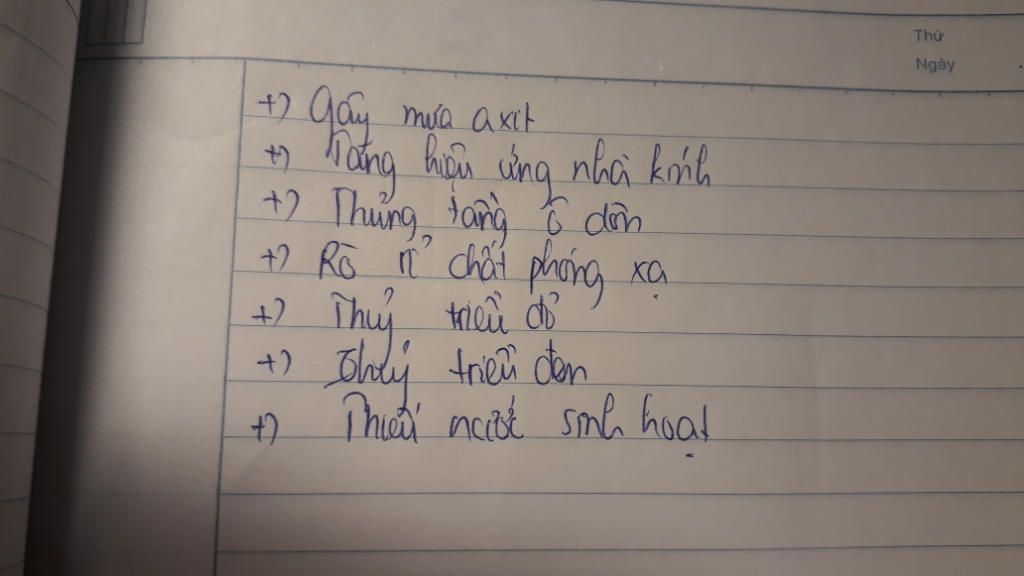 Thứ
Ngày
+) Gây mưa axit
+) Tăng hiệu ứng nhà kính
+) Thủng tầng ô dôn
+) Rò rỉ chất phóng xạ
+) Thuỷ triều đỏ
+) Thuỷ triều đen
+) Thiếu nước sinh hoạt